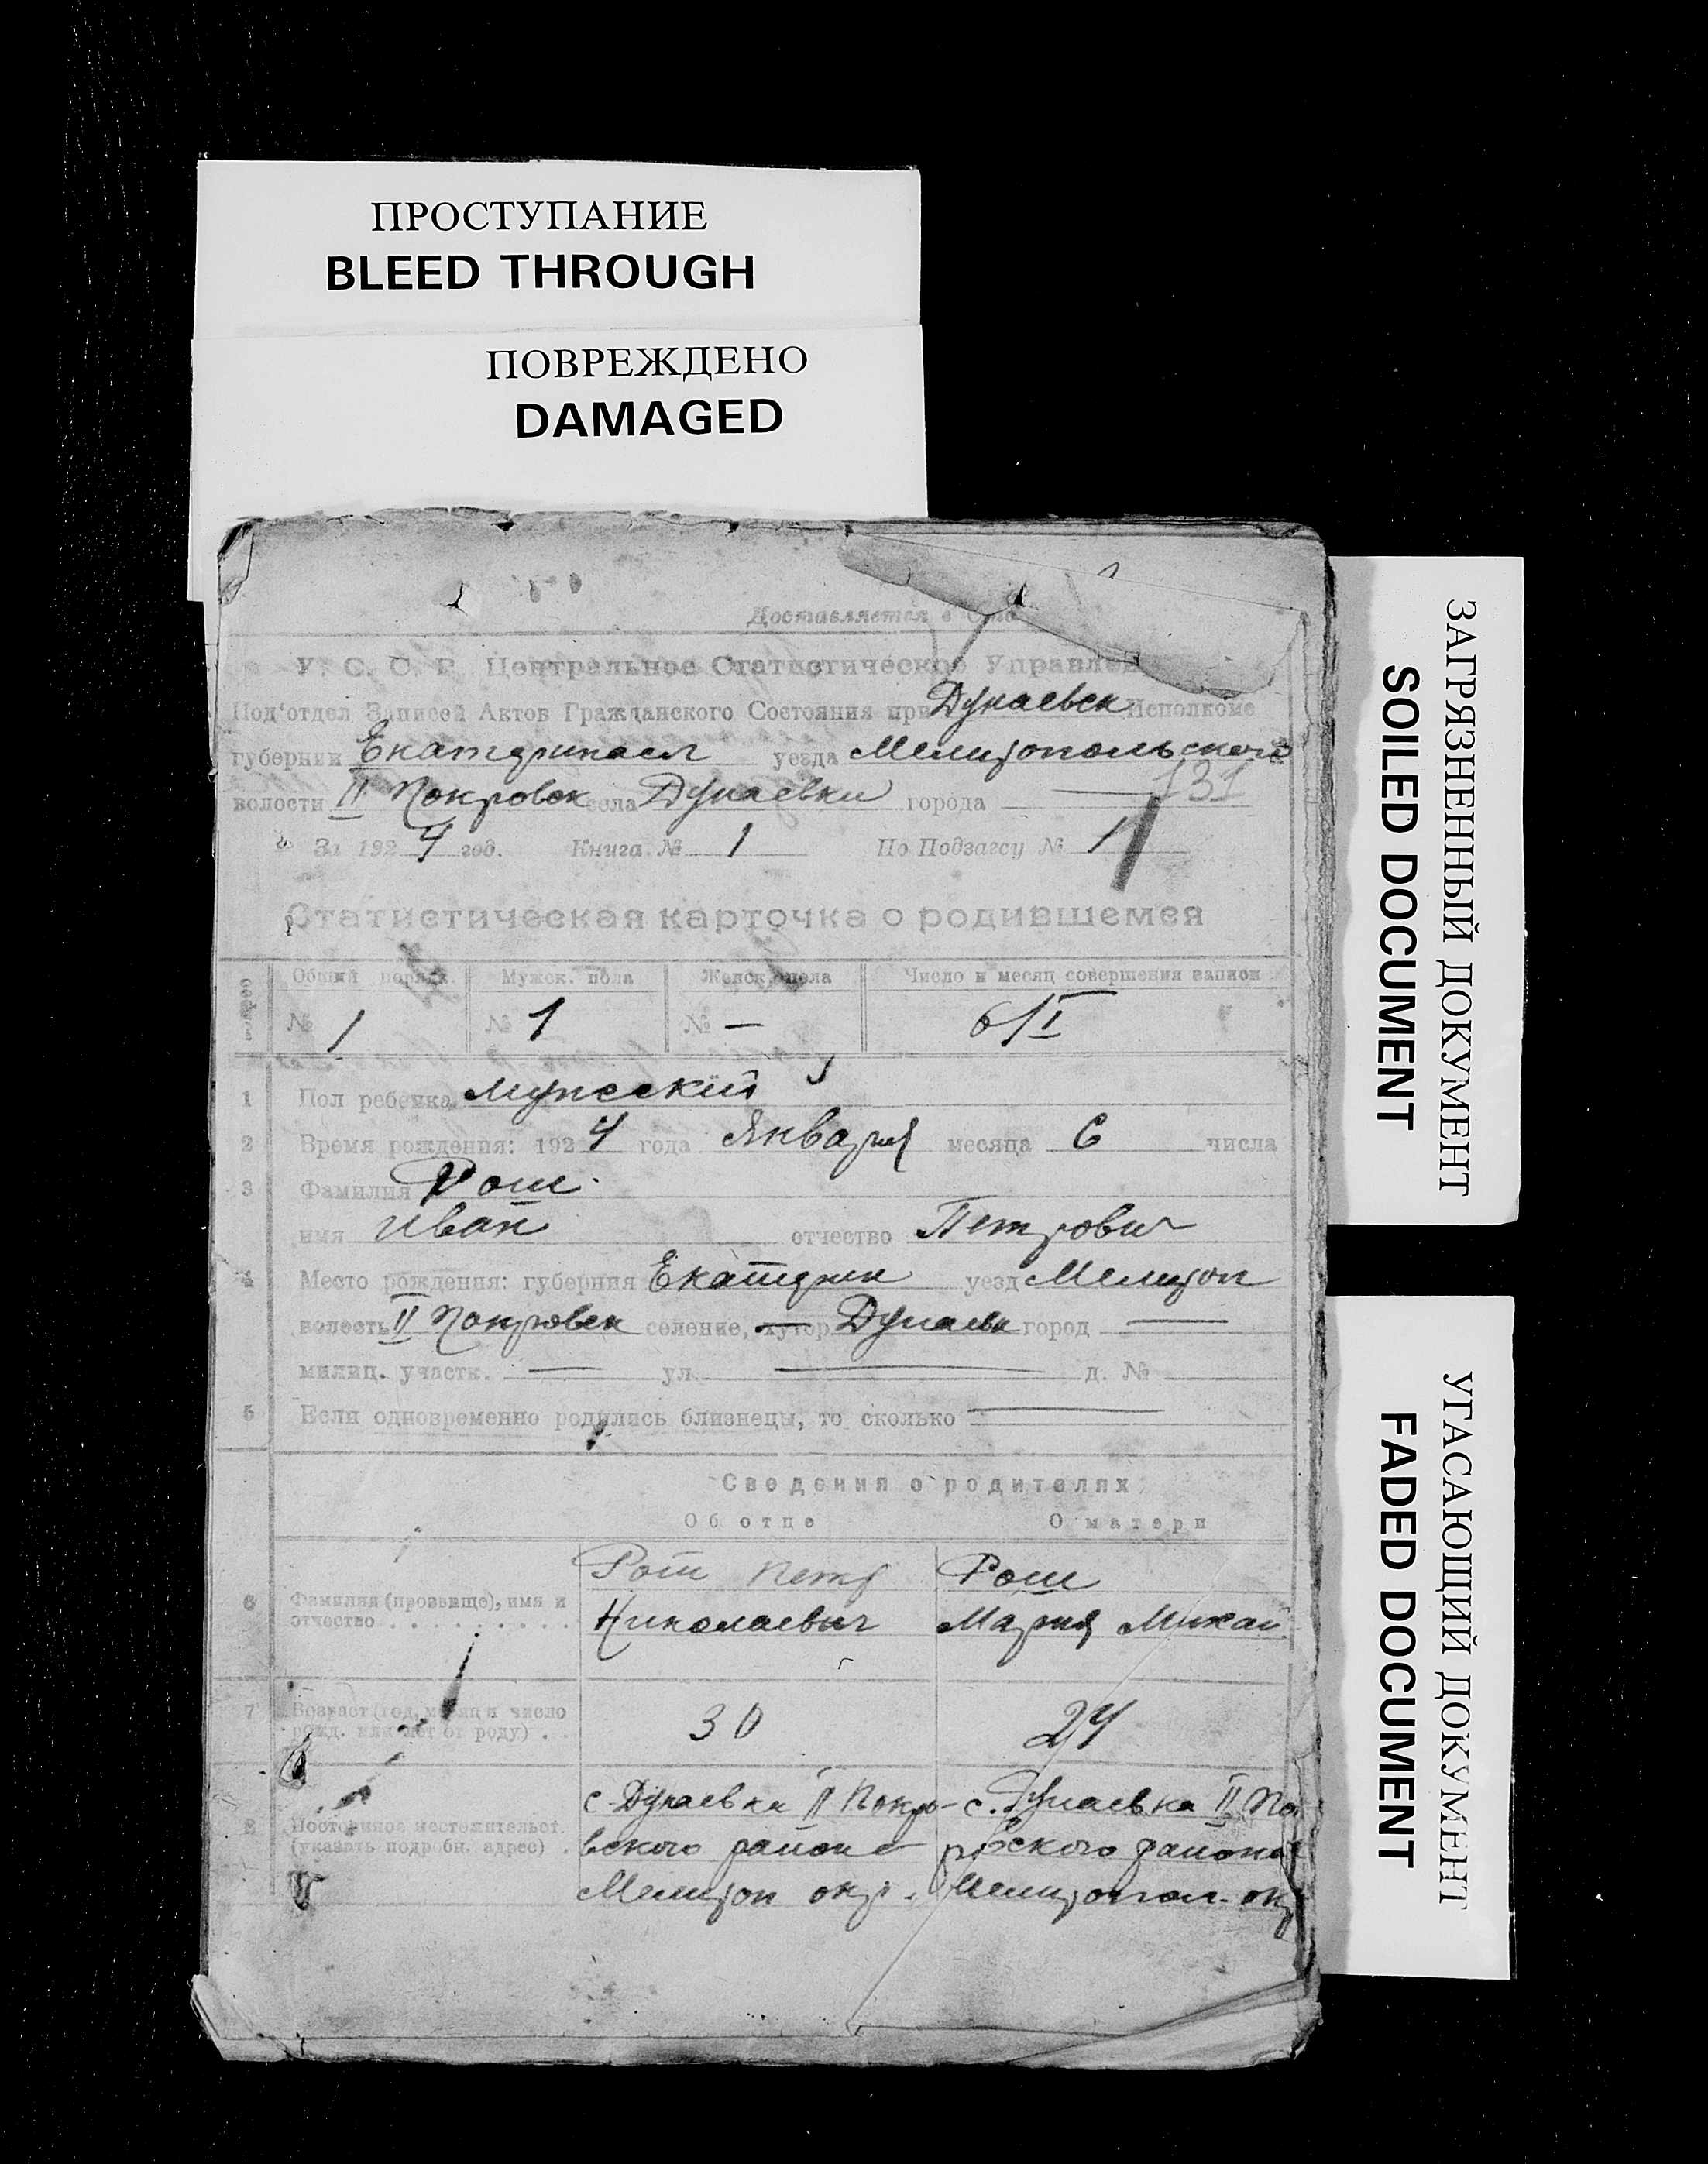 ПРОСТУПАНИЕ
BLEED THROUGH
ПОВРЕЖДЕНО
DAMAGED
Доставляется в
У. С. С. Р. Центральное Статистическое Управлен
Под'отдел Записей Актов Гражданского Состояния при Дунаевск Исполкоме
губернии Екатеринасл уезда Мелитопольского
волости II Покровск села Дунаевки города — 131
За 1924 год. Книга № 1 По Подзагсу № 1
Статистическая карточка о родившемся
Общий порядк. Мужск. пола Женск. пола Число и месяц совершения записи
№ 1 № 1 № — 6/I
1 Пол ребенка мужеский
2 Время рождения: 1924 года Января месяца 6 числа
3 Фамилия Рот
имя Иван отчество Петрович
4 Место рождения: губерния Екатерин уезд Мелитоп
волость II Покровск селение, хутор — Дунаевк город —
милиц. участк. — ул. — д. №
5 Если одновременно родились близнецы, то сколько —
Сведения о родителях
Об отце О матери
Рот Петр Рот
6 Фамилия (прозвище), имя и
отчество Николаевич Мария Михай
7 Возраст (год, месяц и число
рожд. или лет от роду) 30 24
с. Дунаевка II Покро- с. Дунаевка II По
8 Постоянное местожительст.
(указать подробн. адрес) вского района ровского района
Мелитоп окр. Мелитопол. окр
ЗАГРЯЗНЕННЫЙ ДОКУМЕНТ
SOILED DOCUMENT
УГАСАЮЩИЙ ДОКУМЕНТ
FADED DOCUMENT